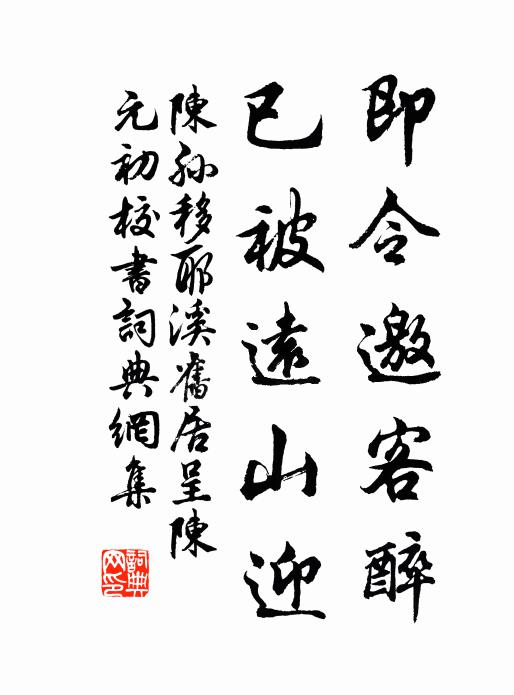 即令邀客醉
已被遠山迎
陳孫移耶溪舊居呈陳
元初校書詞典網集
詞典網印